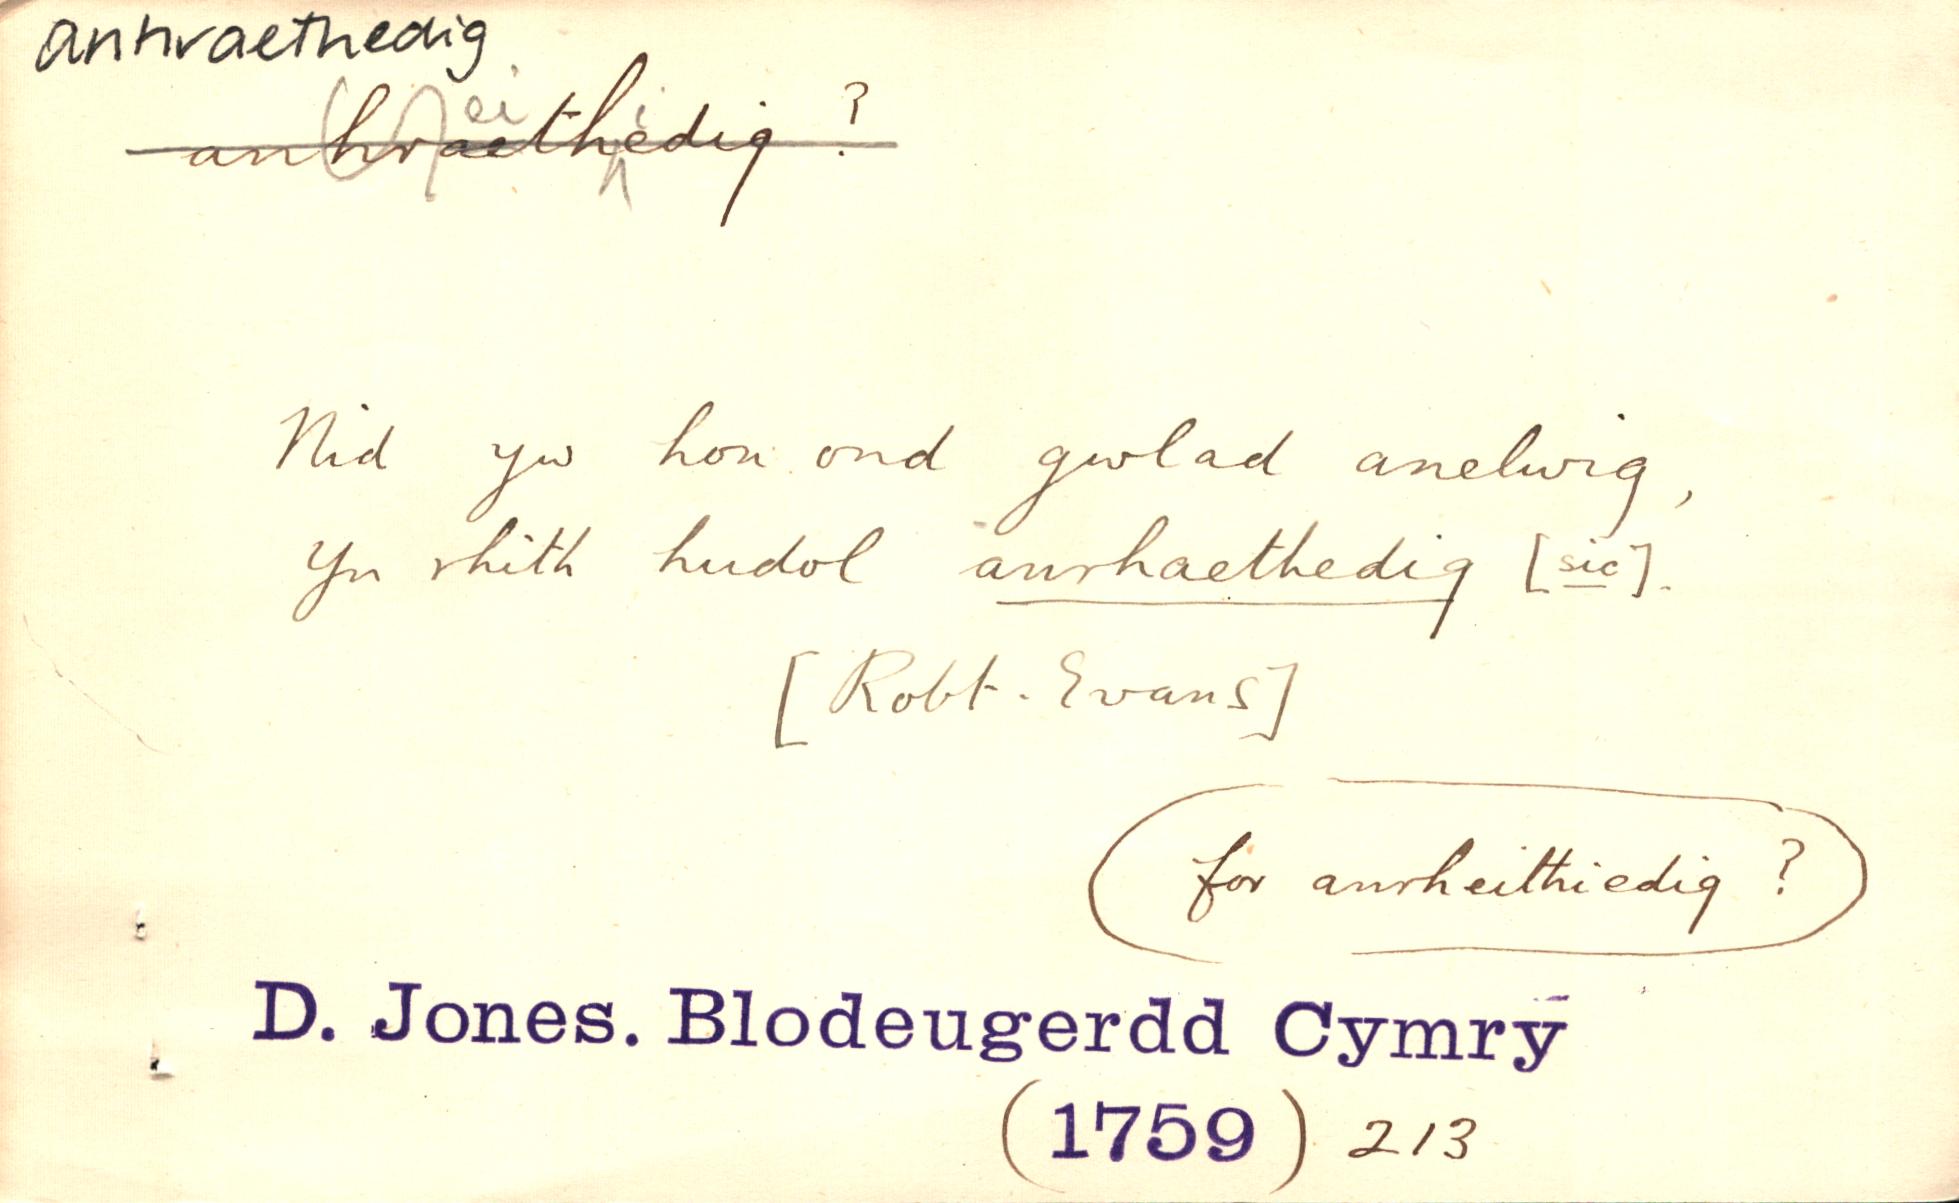 anhraethedig
anhraethedig ?
ei i
Nid yw hon ond gwlad anelwig,
Yn rhith hudol anrhaethedig [sic].
[Robt. Evans]
for anrheithiedig ?
D. Jones. Blodeugerdd Cymry
(1759) 213